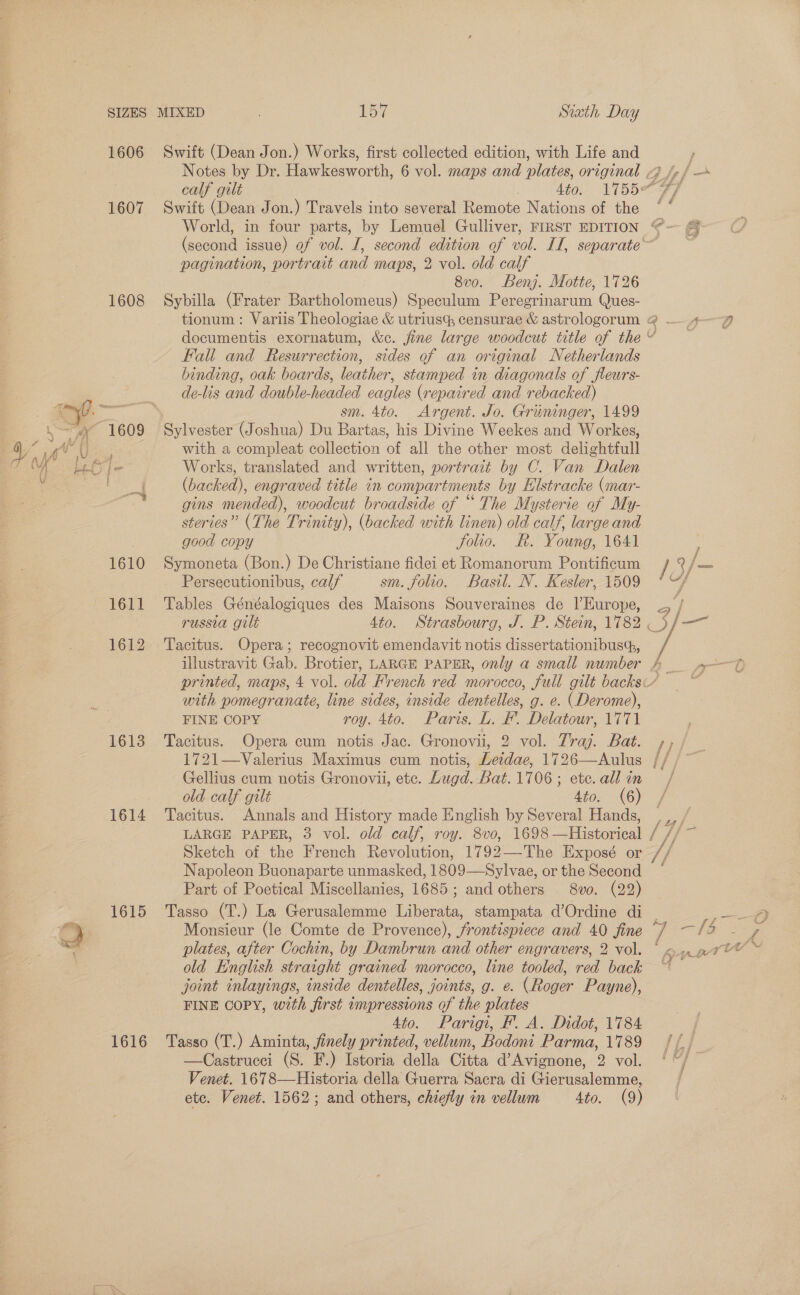 SIZES MIXED 157 Sixth Day
1606 Swift (Dean Jon.) Works, first collected edition, with Life and
Notes by Dr. Hawkesworth, 6 vol. maps and plates, original
calf gilt 4to. 1755
1607 Swift (Dean Jon.) Travels into several Remote Nations of the
World, in four parts, by Lemuel Gulliver, FIRST EDITION
(second issue) of vol. I, second edition of vol. II, separate
pagination, portrait and maps, 2 vol. old calf
8vo. Benj. Motte, 1726
1608 Sybilla (Frater Bartholomeus) Speculum Peregrinarum Ques-
tionum : Variis Theologiae & utriusq, censurae & astrologorum
documentis exornatum, &c. fine large woodcut title of the
Fall and Resurrection, sides of an original Netherlands
binding, oak boards, leather, stamped in diagonals of fleurs-
de-lis and double-headed eagles (repaired and rebacked)
sm. 4to. Argent. Jo. Grüninger, 1499
1609 Sylvester (Joshua) Du Bartas, his Divine Weekes and Workes,
with a compleat collection of all the other most delightfull
Works, translated and written, portrait by C. Van Dalen
(backed), engraved title in compartments by Elstracke (mar-
gins mended), woodcut broadside of “ The Mysterie of My-
steries” (The Trinity), (backed with linen) old calf, large and
good copy folio. R. Young, 1641
1610 Symoneta (Bon.) De Christiane fidei et Romanorum Pontificum
Persecutionibus, calf sm. folio. Basil. N. Kesler, 1509
1611 Tables Généalogiques des Maisons Souveraines de l'Europe,
russia gilt 4to. Strasbourg, J. P. Stein, 1782
1612 Tacitus. Opera ; recognovit emendavit notis dissertationibusq,
illustravit Gab. Brotier, LARGE PAPER, only a small number
printed, maps, 4 vol. old French red morocco, full gilt backs
with pomegranate, line sides, inside dentelles, g. e. (Derome),
FINE COPY roy. 4to. Paris. L. F. Delatour, 1771
1613 Tacitus. Opera cum notis Jac. Gronovii, 2 vol. Traj. Bat.
1721—Valerius Maximus cum notis, Leidae, 1726—Aulus
Gellius cum notis Gronovii, etc. Lugd. Bat. 1706 ; etc. all in
old calf gilt 4to. (6)
1614 Tacitus. Annals and History made English by Several Hands,
LARGE PAPER, 3 vol. old calf, roy. 8vo, 1698—Historical
Sketch of the French Revolution, 1792—The Exposé or
Napoleon Buonaparte unmasked, 1809—Sylvae, or the Second
Part of Poetical Miscellanies, 1685 ; and others 8vo. (22)
1615 Tasso (T.) La Gerusalemme Liberata, stampata d'Ordine di
Monsieur (le Comte de Provence), frontispiece and 40 fine
plates, after Cochin, by Dambrun and other engravers, 2 vol.
old English straight grained morocco, line tooled, red back
joint inlayings, inside dentelles, joints, g. e. (Roger Payne),
FINE COPY, with first impressions of the plates
4to. Parigi, F. A. Didot, 1784
1616 Tasso (T.) Aminta, finely printed, vellum, Bodoni Parma, 1789
—Castrucci (S. F.) Istoria della Citta d'Avignone, 2 vol.
Venet. 1678—Historia della Guerra Sacra di Gierusalemme,
etc. Venet. 1562 ; and others, chiefly in vellum 4to. (9)